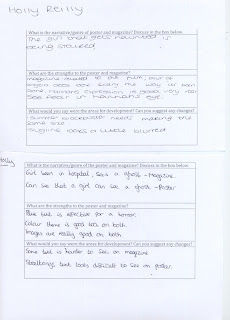 Holly Reilly
What is the narrative/genre of the poster and magazine? Discuss in the box below.
The girl that gets haunted is being stalked
What are the strengths to the poster and magazine?
magazine related to the film,
angela does look scary the way it has been
human's expression is good very
See fear in human's eye.
What would you say were the areas for development? Can you suggest any changes?
needs making the same size
Tagline looks a little blurred
Holly
What is the narrative/genre of the poster and magazine? Discuss in the box below.
Girl been in hospital, sees a ghost - Magazine
Can see that a girl can see a ghost - Poster
What are the strengths to the poster and magazine?
Blue text is effective for a horror.
Colour theme is good too on both
Images are really good on both
What would you say were the areas for development? Can you suggest any changes?
Some text is harder to see on magazine
text looks difficult to see on poster.